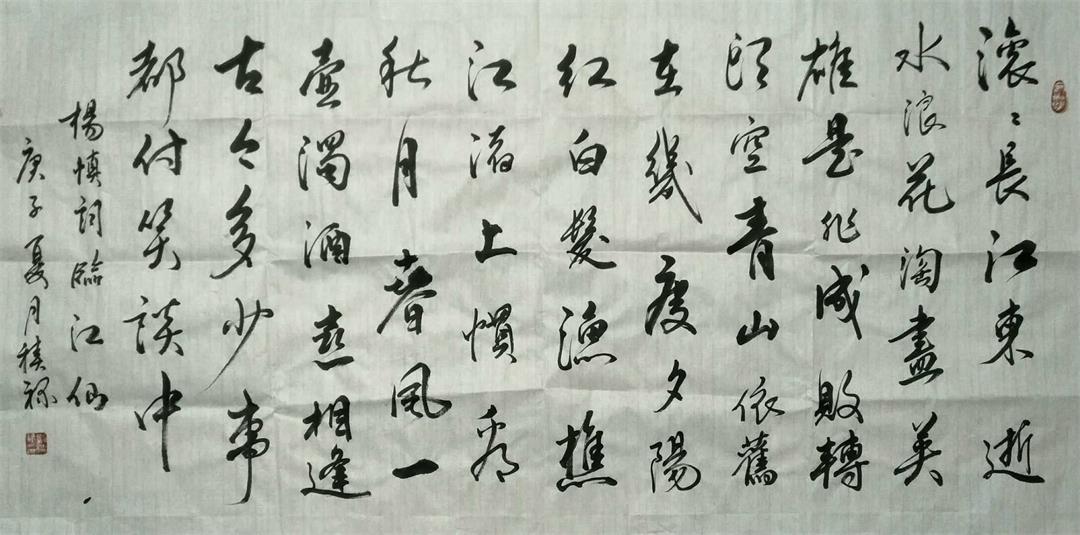 滾〻長江東逝
水浪花淘盡英
雄是非成敗轉
頭空青山依舊
在幾度夕陽
紅白髮漁樵
江渚上慣看
秋月春風一
壺濁酒喜相逢
古今多少事
都付笑談中
楊慎詞臨江仙
庚子夏月